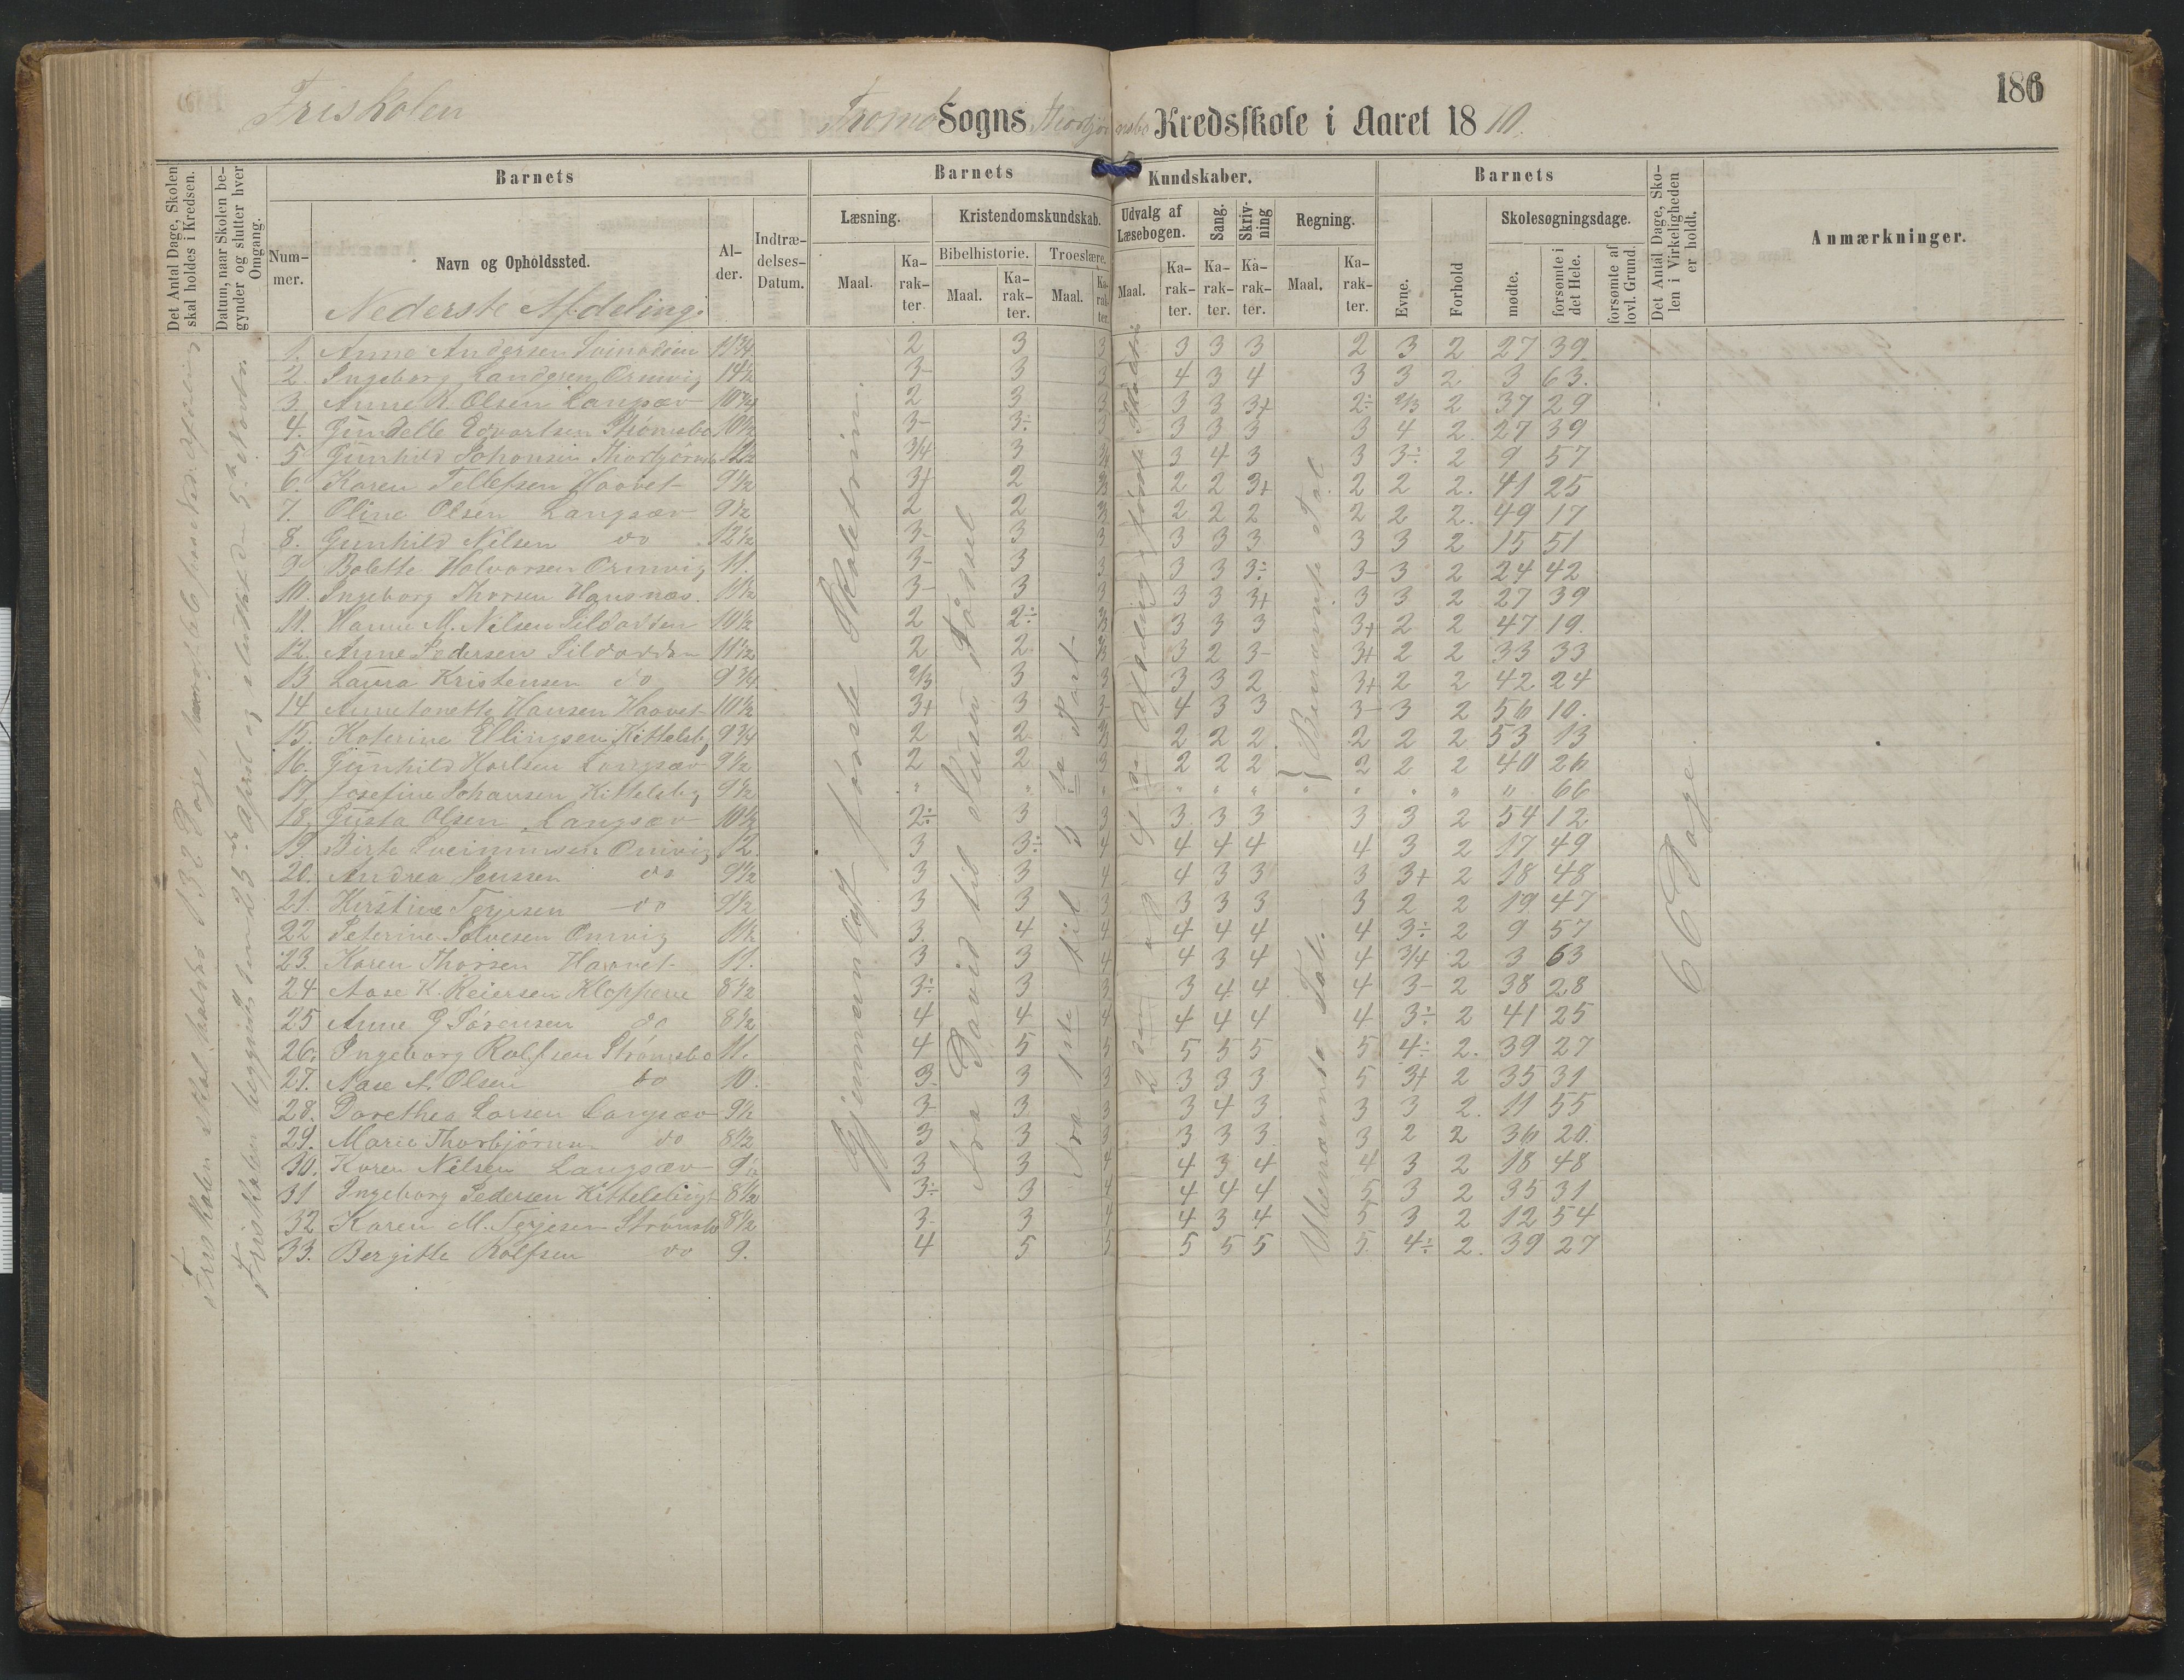 186
Friskolen Tromø Sogns Thorbjørnsbo Kredsskole i Aaret 1870.
Det Antal Dage, Skolen skal holdes i Kredsen.
Datum, naar Skolen begynder og slutter hver Omgang.
Barnets
Barnets Kundskaber.
Barnets
Det Antal Dage, Skolen i Virkeligheden er holdt.
Anmærkninger.
Nummer.
Navn og Opholdssted.
Alder.
Indtrædelses-Datum.
Læsning.
Kristendomskundskab.
Udvalg af Læsebogen.
Sang.
Skrivning
Regning.
Evne.
Forhold
Skolesøgningsdage.
Bibelhistorie. Troeslære.
Maal. Karakter. Maal. Karakter. Maal. Karakter. Maal. Karakter. Karakter. Karakter. Maal. Karakter.
mødte. forsømte i det Hele. forsømte af lovl. Grund.
Nederste Afdeling.
1. Anne Andersen 11 3/4 2 3 3 3 3 3 2 3 2 27 39
2. Ingeborg Landgren Ormvig 14 1/2 3- 3 3 4 3 4 3 3 2 3 63.
3. Anne K. Olsen Langsæv 10 3/4 2 3 3 3 3 3+ 2÷ 2/3 2 37 29
4. Gundelle Edvartsen Strømsbo 10 1/2 3- 3÷ 3 3 3 3 3 4 2 27 39
5 Gunhild Johansen Thorbjørnsb 12 1/2 3/4 3 3/4 3 4 3 3 3÷ 2 9 57
6. Karen Tellefsen Haavet 9 1/2 3+ 2 2/3 2 2 3+ 2 2 2. 41 25
7. Oline Olsen Langsæv 9 1/2 2 2 2/3 2 2 2 2 2 2. 49 17
8. Gunhild Nilsen do 12 1/2 3- 3 3 3 3 3 3 3 2 15 51
9 Bolette Halvorsen Ormvig 11. 3- 3 3 3 3 3÷ 3- 3 2 24 42
10. Ingeborg Thorsen Hausnæs. 11 1/2 3- 3 3 3 3 3+ 3 3 2 27 39
11. Hanne M. Nilsen Sildodden 10 1/2 2 2÷ 2/3 3 3 3 3+ 2 2 47 19.
12. Anne Pedersen Sildodden 11 1/2 2 2 2/3 3 2 3- 3+ 2 2 33 33
13 Laura Kristensen do 9 3/4 2/3 3 3 3 3 2 3+ 2 2 42 24
14 Annetonette Hansen Haavet 10 1/2 3+ 3 3- 4 3 3 3- 3 2 56 10.
15. Katerine Ellingsen Kittelsb 9 3/4 2 2 2/3 2 2 2 2 2 2 53 13
16. Gunhild Karlsen Langsæv 9 1/2 2 2 3 2 2 2 2 2 2 40 26
17. Josefine Johansen Kittelsby 9 1/2 " " " " " " " " " " 66
18. Gusta Olsen Langsæv 10 1/2 2÷ 3 3 3 3 3 3 3 2 54 12
19. Birte Sveinunsen Omvig 12. 3 3÷ 4 4 4 4 4 3 2 17 49
20. Andrea Jenssen do 9 1/2 3 3 4 4 3 3 3 3+ 2 18 48
21. Kirstine Terjesen do 9 1/2 3 3 3 3 3 3 3 2 2 19 47
22 Peterine Salvesen Omvig 11 1/2 3. 4 4 4 4 4 4 3÷ 2 9 57
23. Karen Thorsen Haavet 11. 3 3 4 4 3 4 4 3/4 2 3 63
24 Aase K. Reiersen Klopperne 8 1/2 3÷ 3 3 3 4 4 4 3- 2 38 28
25 Anne G Sørensen do 8 1/2 4 4 4 4 4 4 4 3÷ 2 41 25
26. Ingeborg Rolfsen Strømsbo 11. 4 5 5 5 5 5 5 4÷ 2. 39 27
27. Aase A. Olsen do 10. 3- 3 3 3 3 3 5 3+ 2 35 31
28. Dorethea Larsen Langsæv 9 1/2 3- 3 3 3 4 3 3 3 2. 11 55
29. Marie Thorbjørnsen do 8 1/2 3 3 3 3 3 3 3 2 2 36 20.
30. Karen Nilsen Langsæv 9 1/2 3 3 4 4 3 4 4 3 2 18 48
31 Ingeborg Pedersen Kittelsbugt 8 1/2 3÷ 3 4 4 4 4 5 3 2 35 31
32 Karen M. Terjesen Strømsbo 8 1/2 3- 3 4 4 3 4 5 3 2 12 54
33. Bergitte Rolfsen do 9. 4 5 5 5 5 5 5 4÷ 2. 39 27
Friskolen skal holdes i 132 Dage,
Friskolen begyndte den 25de April og sluttede den 5te Novbr.
Gjennemgaaet første Skoletrin.
Fra David til Jesu Fødsel
Fra 1ste til 5te Part
2den og 4de Afdeling, første Skoletrin
Ubenævnte Tal. } Benævnte Tal
66 Dage.